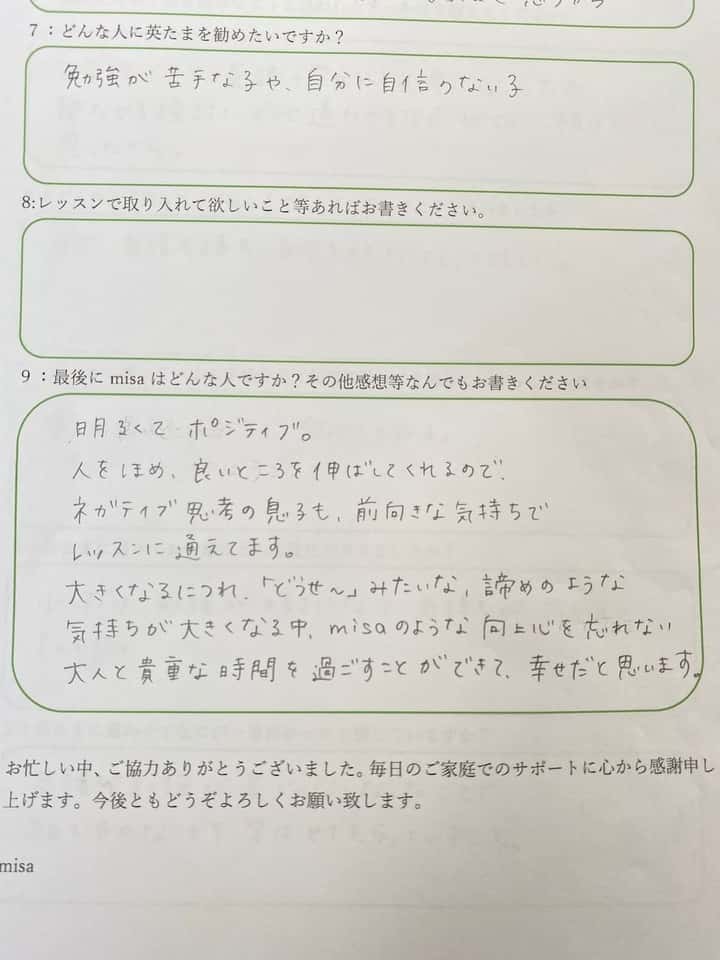 と思うから
7：どんな人に英たまを勧めたいですか？
勉強が苦手な子や、自分に自信のない子
8:レッスンで取り入れて欲しいこと等あればお書きください。
9：最後に misa はどんな人ですか？その他感想等なんでもお書きください
明るくて ポジティブ。
人をほめ、良いところを伸ばしてくれるので、
ネガティブ思考の息子も、前向きな気持ちで
レッスンに通えてます。
大きくなるにつれ、「どうせ〜」みたいな、諦めのような
気持ちが大きくなる中、misaのような向上心を忘れない
大人と貴重な時間を過ごすことができて、幸せだと思います。
お忙しい中、ご協力ありがとうございました。毎日のご家庭でのサポートに心から感謝申し
上げます。今後ともどうぞよろしくお願い致します。
misa